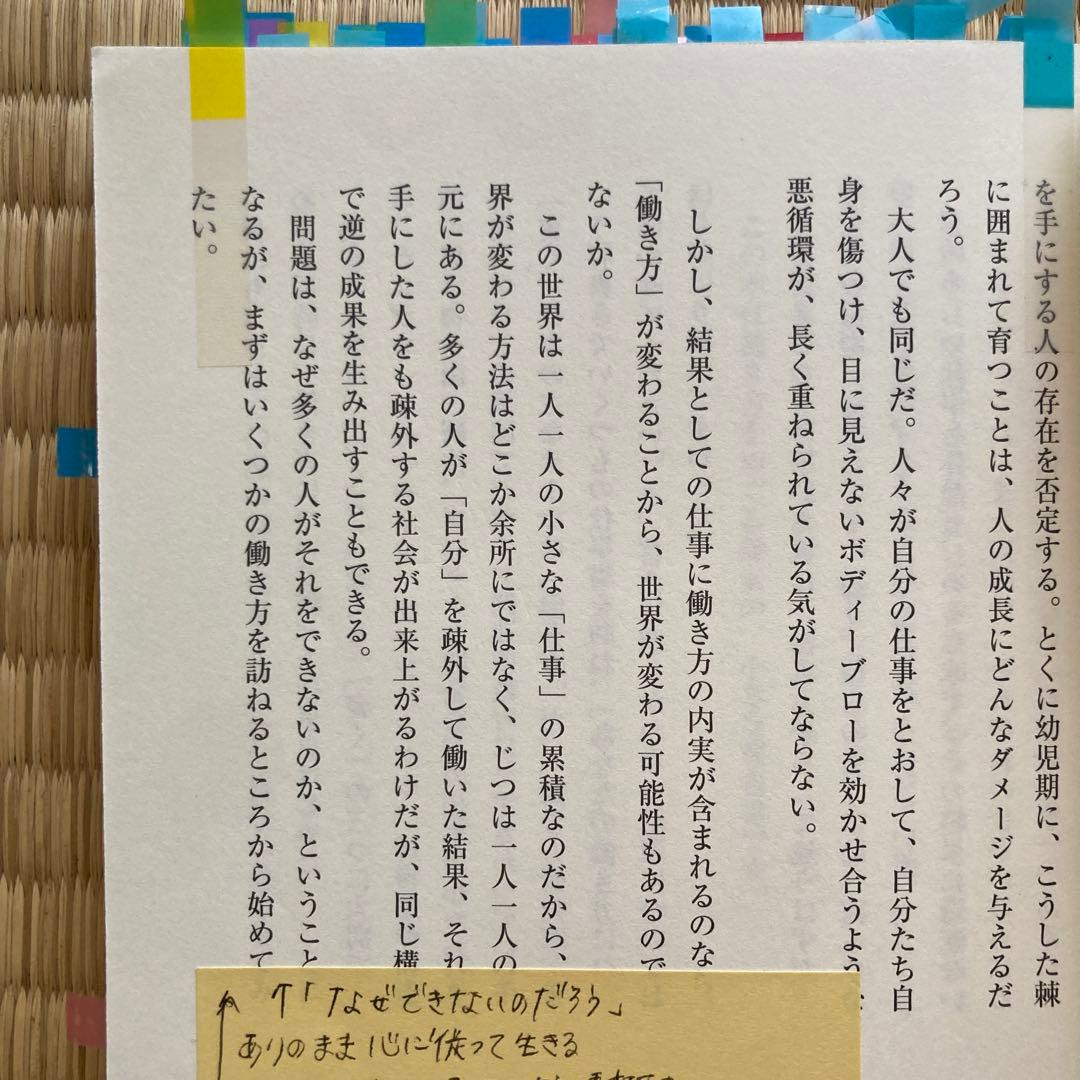 を手にする人の存在を否定する。とくに幼児期に、こうした棘
に囲まれて育つことは、人の成長にどんなダメージを与えるだ
ろう。
大人でも同じだ。人々が自分の仕事をとおして、自分たち自
身を傷つけ、目に見えないボディーブローを効かせ合うよう
悪循環が、長く重ねられている気がしてならない。
しかし、結果としての仕事に働き方の内実が含まれるのな
「働き方」が変わることから、世界が変わる可能性もあるので
ないか。
この世界は一人一人の小さな「仕事」の累積なのだから、
界が変わる方法はどこか余所にではなく、じつは一人一人の
元にある。多くの人が「自分」を疎外して働いた結果、それ
手にした人をも疎外する社会が出来上がるわけだが、同じ構
で逆の成果を生み出すこともできる。
問題は、なぜ多くの人がそれをできないのか、ということ
なるが、まずはいくつかの働き方を訪ねるところから始めて
たい。
↑「なぜできないのだろう」
ありのまま心に従って生きる